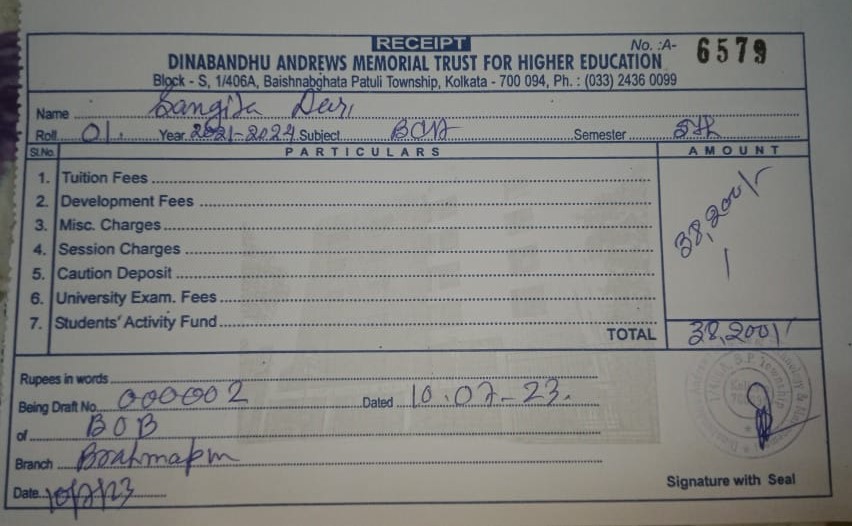 RECEIPT
No. :A- 6579
DINABANDHU ANDREWS MEMORIAL TRUST FOR HIGHER EDUCATION
Block - S, 1/406A, Baishnabghata Patuli Township, Kolkata - 700 094, Ph. : (033) 2436 0099
Name Sangita
Roll 01. Year 2021-2024 Subject BCA Semester 5th
Sl.No. PARTICULARS AMOUNT
1. Tuition Fees
2. Development Fees
3. Misc. Charges
4. Session Charges
5. Caution Deposit
6. University Exam. Fees
7. Students' Activity Fund
38,200/-
TOTAL 38,200/-
Rupees in words
Being Draft No. 000002 Dated 10.07-23.
of BOB
Branch Brahmapur
Date 10/7/23
Signature with Seal